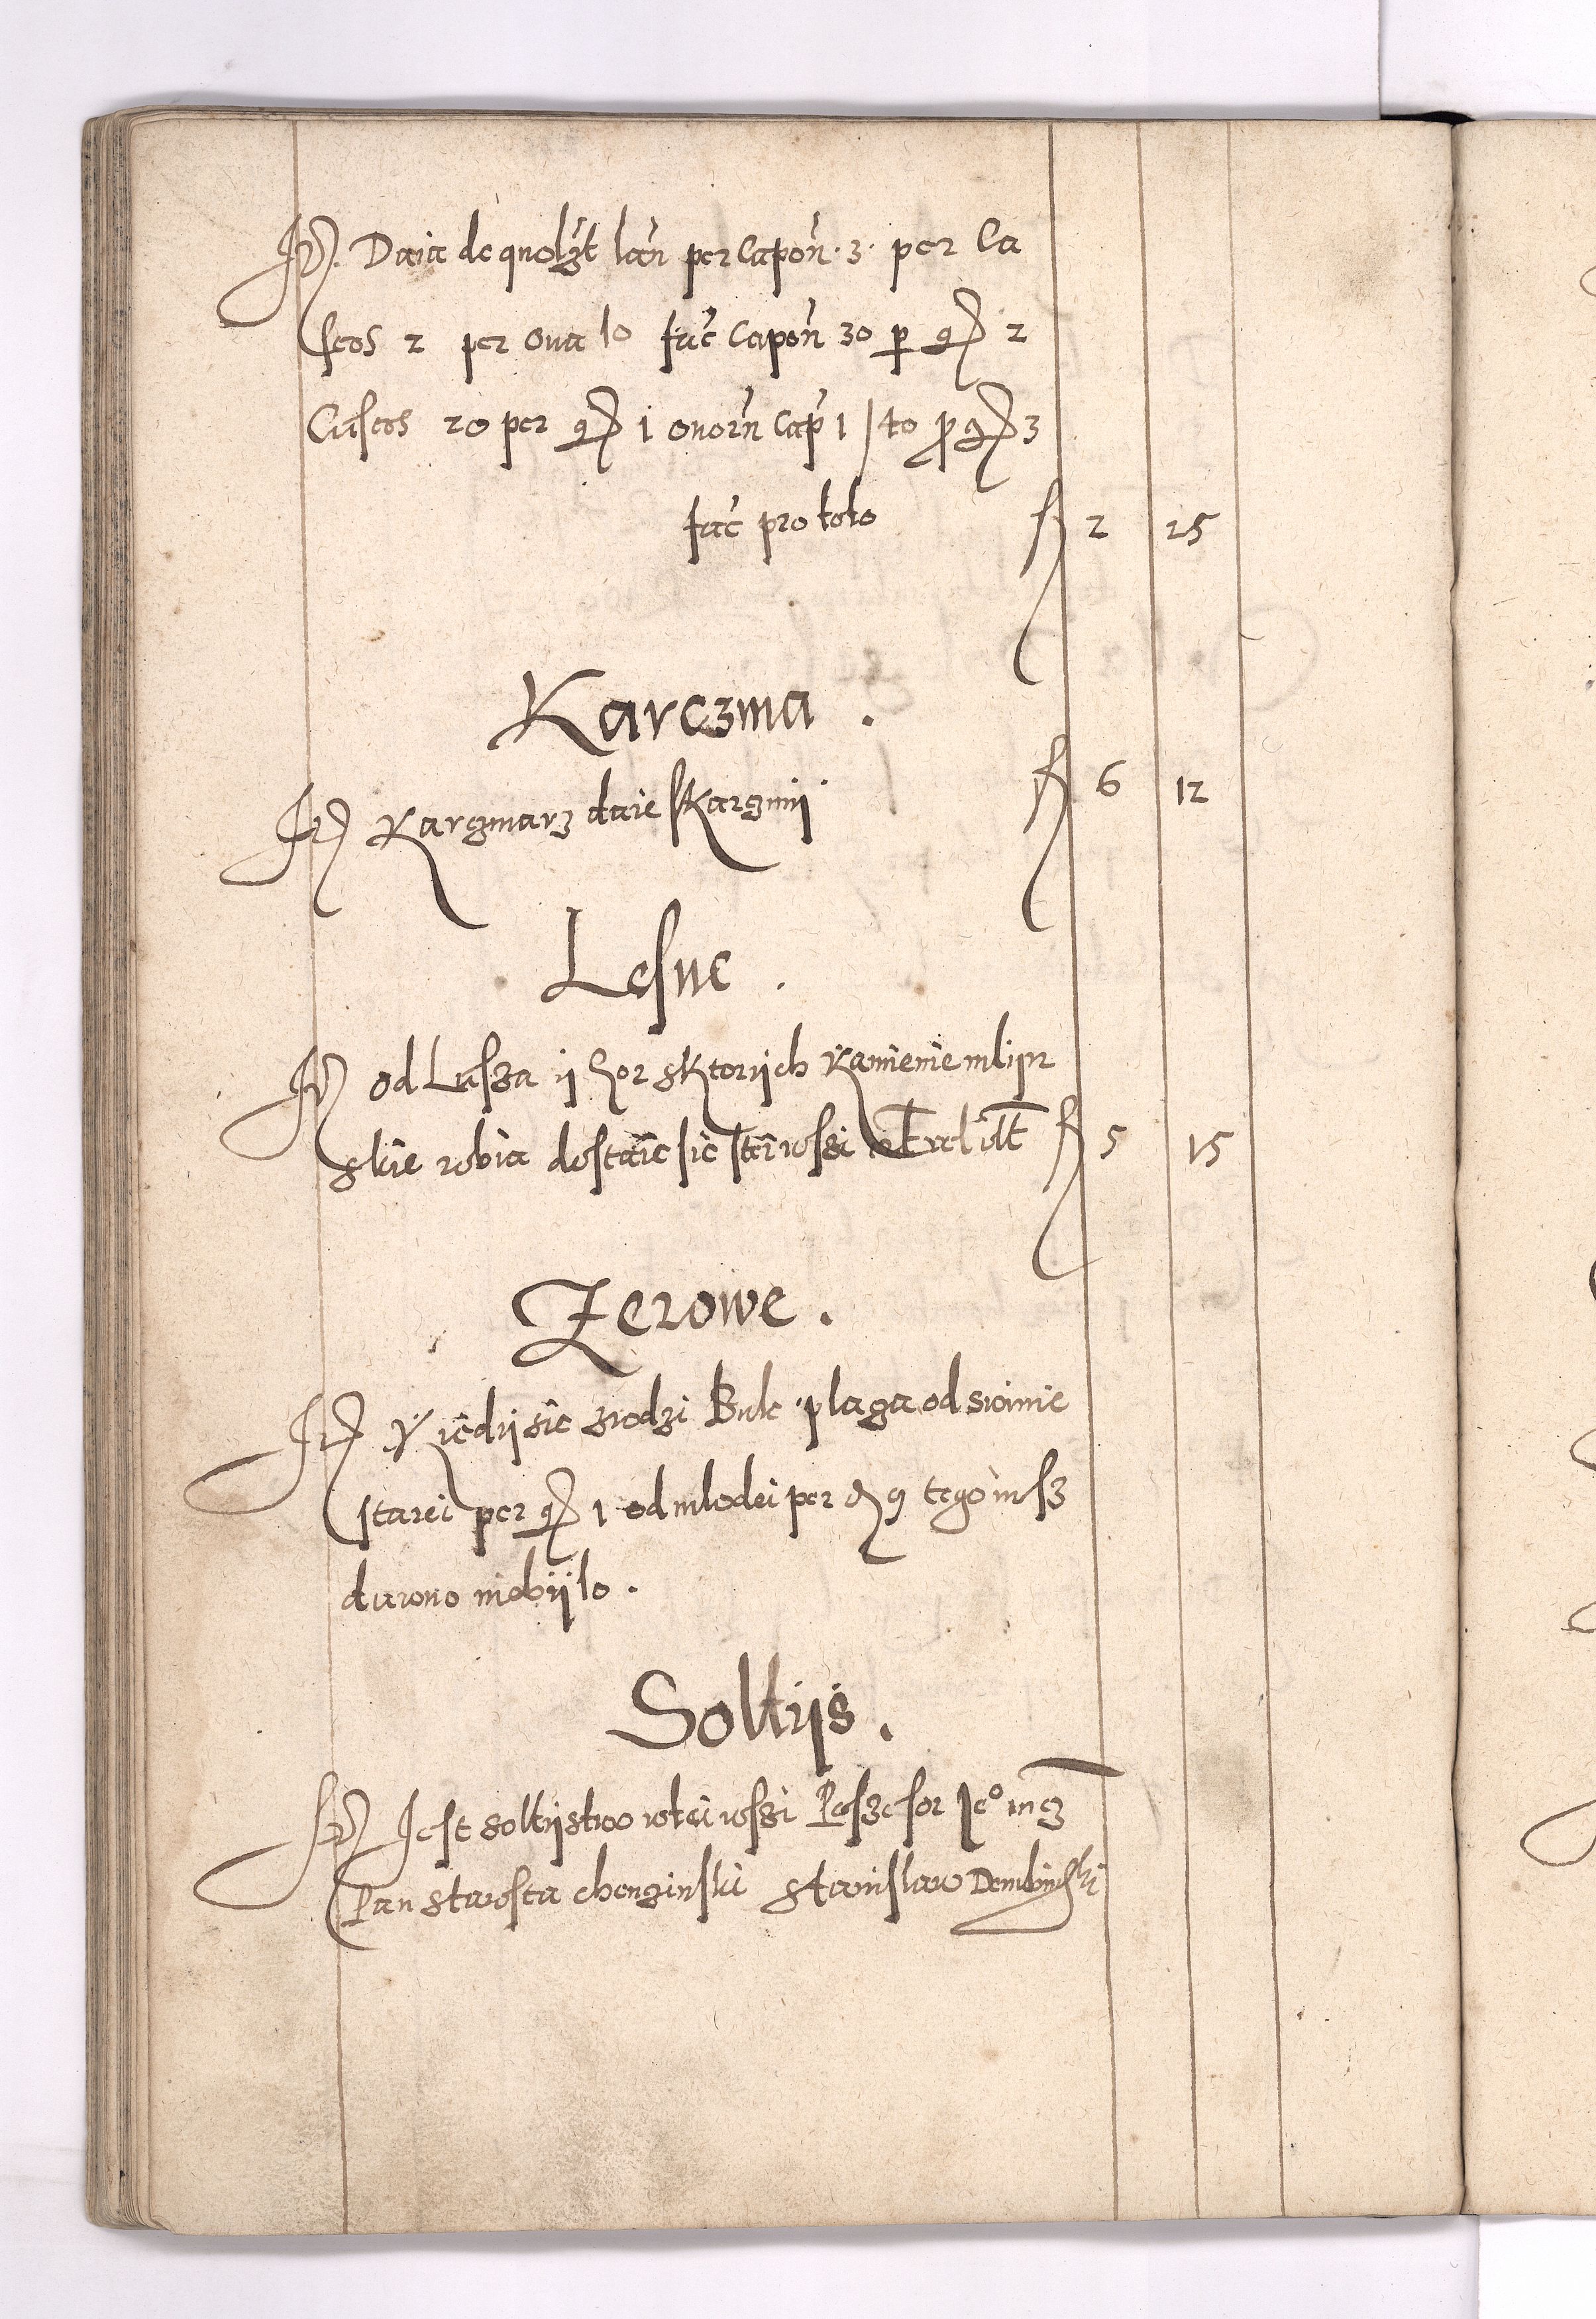 It. Daia de quolzt lan per Capon. 3. per Ca
seos 2 per oua 10 fac Capon 30 per g 2
Caseos 20 per g 1 ouorn Cap 1 / to pro g 3
fac pro toto f 2 25
Karczma.
It Karzmarz daie skarzmij f 6 12
Lesne.
It od Lassa ij hor sktorijch Kamienie mlijn
skie robia dostaie sie stei wssi f 5 15
Zerowe.
It Kiedij sie zrodzi Buk placza od swinie
starei per g 1 od mlodei per d 9 tego iusz
dawno niebijlo.
Soltijs.
It Jest soltijstwo wtei wssi Possesor Je° mcz
Pan starosta chenzinski Stanislaw Dembinski